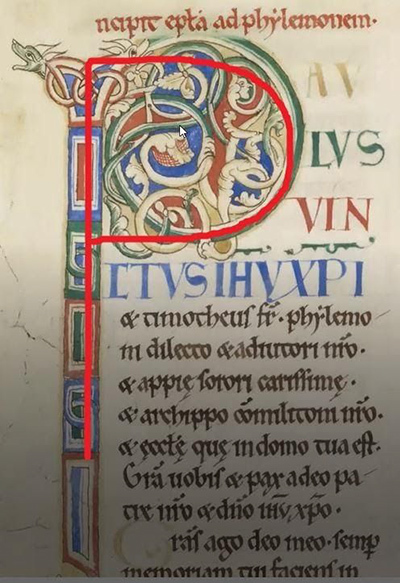 ncipit epła ad phylemonem·
P AV
LVS
VIN
CTVS IHV XPI
& timotheus fr̄· phylemo
ni dilecto & adiutori nr̄o·
& appię sorori carissimę·
& archippo cōmilitoni nr̄o·
& ecctę que in domo tua est·
Gr̄a uobis & pax a deo pa
tre nr̄o & dn̄o ihū xp̄o·
Grās ago deo meo· semp̱
memoriam tui faciens in